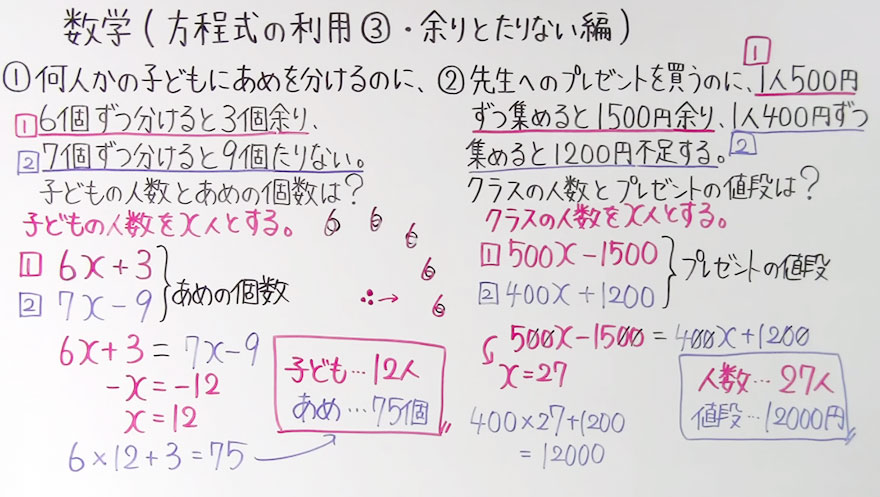 数学(方程式の利用③・余りとたりない編)
①何人かの子どもにあめを分けるのに、
1 6個ずつ分けると3個余り、
2 7個ずつ分けると9個たりない。
子どもの人数とあめの個数は？
子どもの人数をx人とする。
6 6 6 6 6
1 6x+3
2 7x-9
あめの個数
∴→
6x+3=7x-9
-x=-12
x=12
6×12+3=75
子ども…12人
あめ…75個
②先生へのプレゼントを買うのに、1人500円
1
ずつ集めると1500円余り、1人400円ずつ
集めると1200円不足する。2
クラスの人数とプレゼントの値段は？
クラスの人数をx人とする。
1 500x-1500
2 400x+1200
プレゼントの値段
500x-1500=400x+1200
x=27
400×27+1200
=12000
人数…27人
値段…12000円